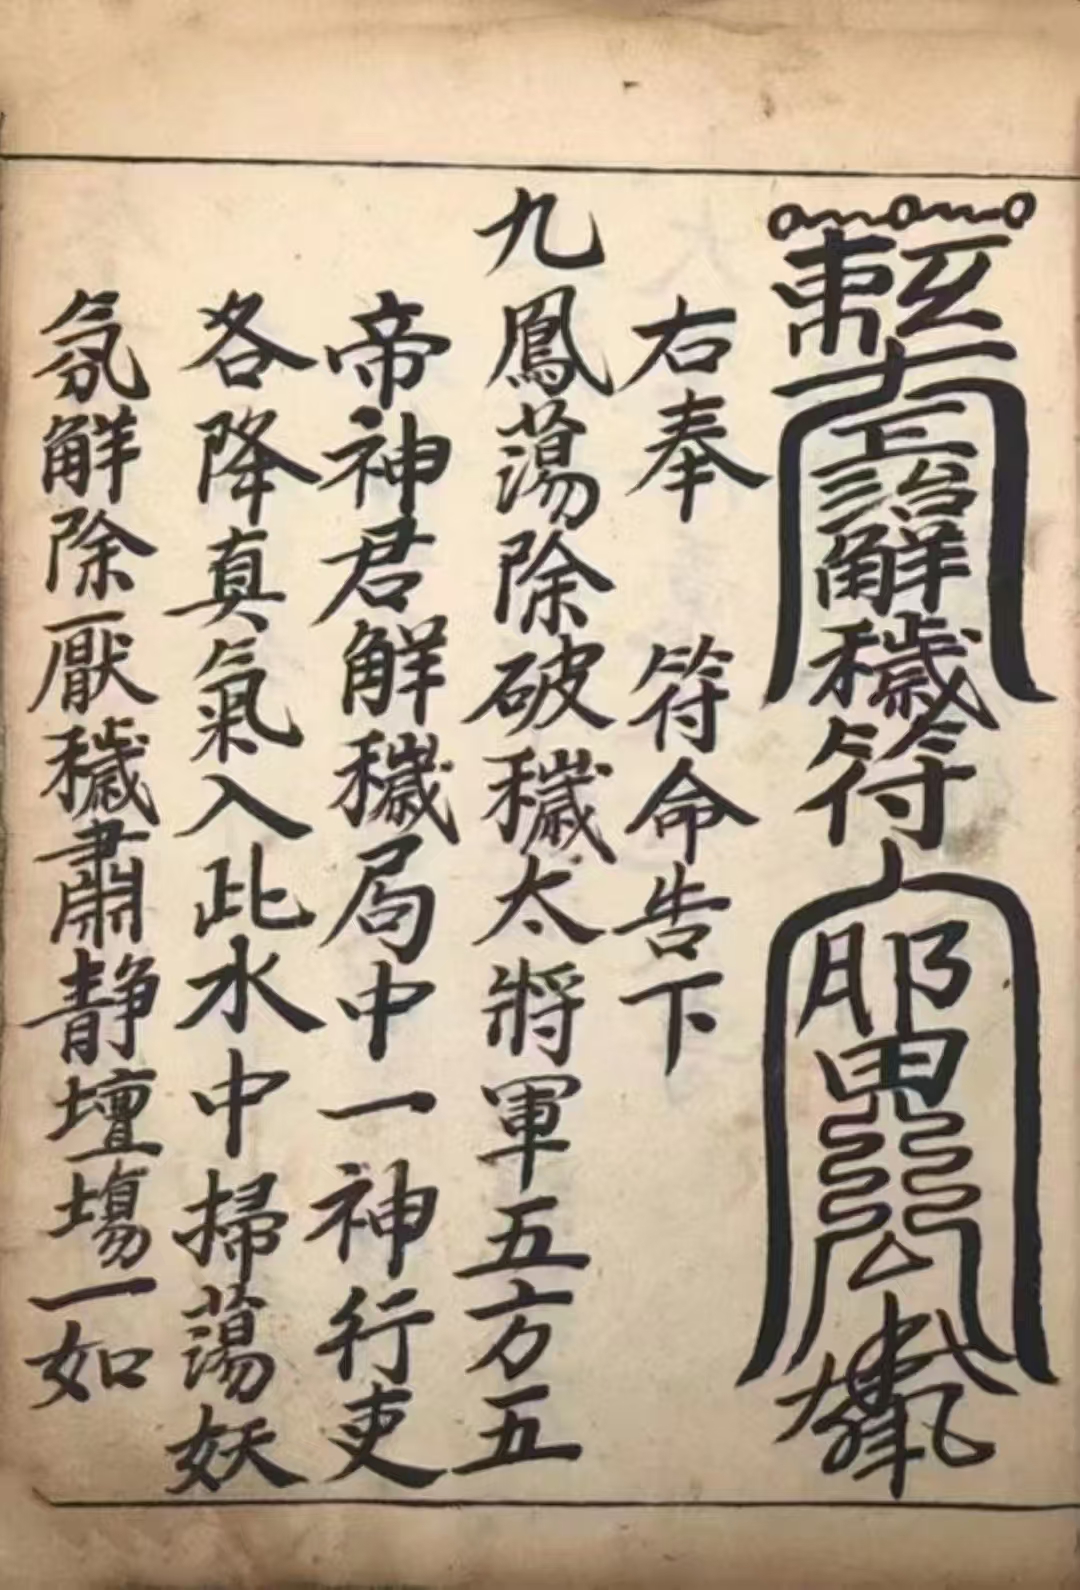 敕
正
治
解
穢
符
右奉 符命告下
九鳳蕩除破穢大將軍五方五
帝神君解穢局中一神行吏
各降真氣入此水中掃蕩妖
氛解除厭穢肅静壇塲一如